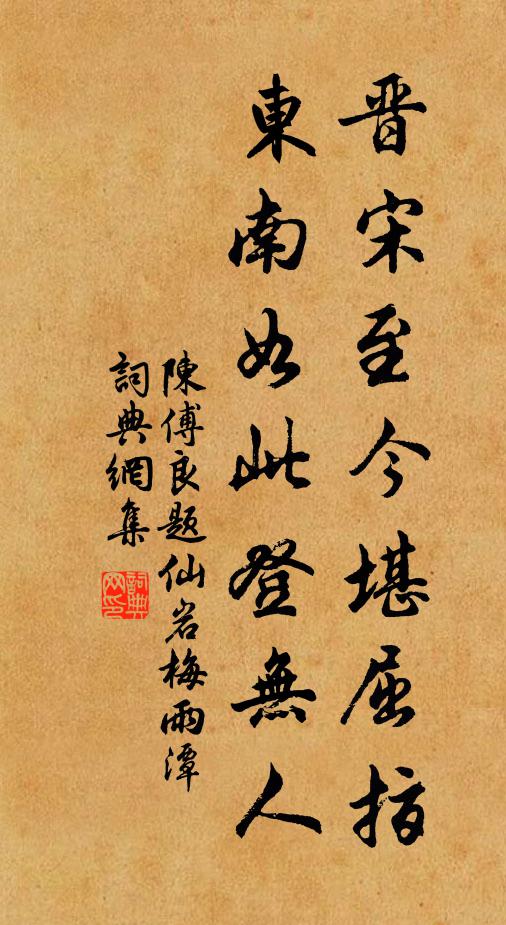 晋宋至今堪屈指
東南如此登無人
陳傅良题仙岩梅雨潭
詞典網集
詞典网印